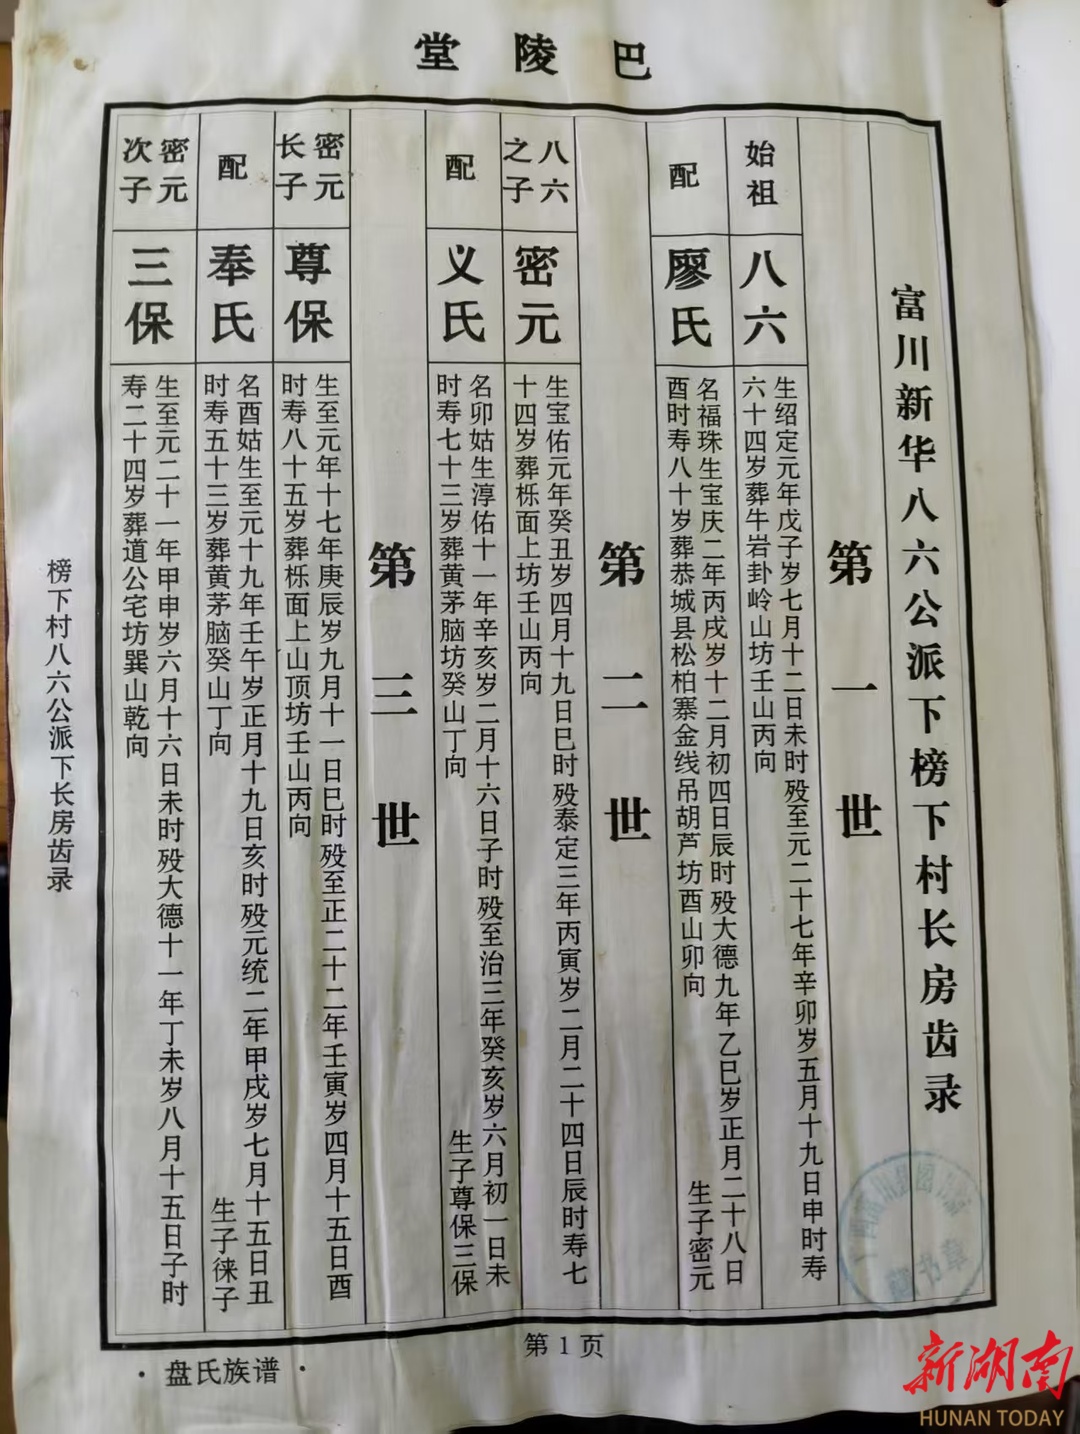 巴陵堂
富川新华八六公派下榜下村长房齿录
第一世
始祖
八六
生绍定元年戊子岁七月十二日未时殁至元二十七年辛卯岁五月十九日申时寿
六十四岁葬牛岩卦岭山坊壬山丙向
配
廖氏
名福珠生宝庆二年丙戌岁十二月初四日辰时殁大德九年乙巳岁正月二十八日
酉时寿八十岁葬恭城县松柏寨金线吊胡芦坊酉山卯向
生子密元
第二世
八六
之子
密元
生宝佑元年癸丑岁四月十九日巳时殁泰定三年丙寅岁二月二十四日辰时寿七
十四岁葬栎面上坊壬山丙向
配
义氏
名卯姑生淳佑十一年辛亥岁二月十六日子时殁至治三年癸亥岁六月初一日未
时寿七十三岁葬黄茅脑坊癸山丁向
生子尊保三保
第三世
密元
长子
尊保
生至元年十七年庚辰岁九月十一日巳时殁至正二十二年壬寅岁四月十五日酉
时寿八十五岁葬栎面上山顶坊壬山丙向
配
奉氏
名酉姑生至元十九年壬午岁正月十九日亥时殁元统二年甲戌岁七月十五日丑
时寿五十三岁葬黄茅脑癸山丁向
生子徕子
密元
次子
三保
生至元二十一年甲申岁六月十六日未时殁大德十一年丁未岁八月十五日子时
寿二十四岁葬道公宅坊巽山乾向
榜下村八六公派下长房齿录
第1页
·盘氏族谱·
藏书章
新湖南
HUNAN TODAY